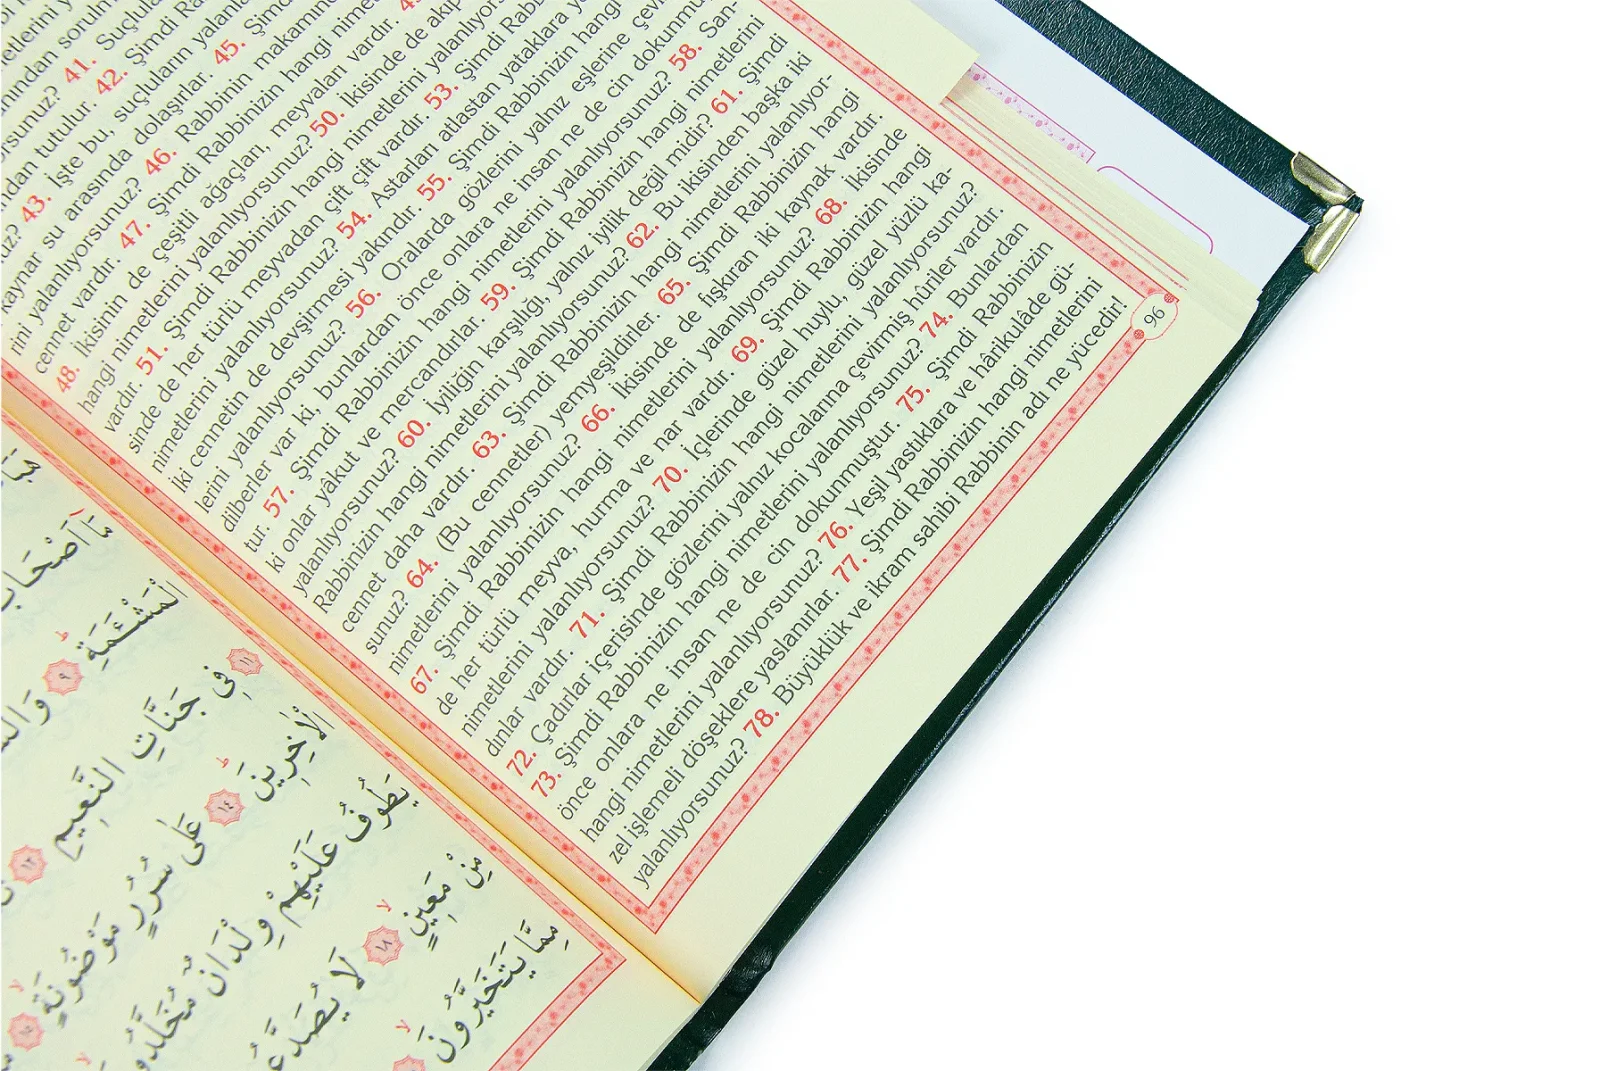 nından sorulm
rsunuz? 41. Suçlula
ından tutulur. 42. Şimdi Ra
uz? 43. İşte bu, suçluların yalanla
kaynar su arasında dolaşırlar. 45. Şim
rini yalanlıyorsunuz? 46. Rabbinin makamın
cennet vardır. 47. Şimdi Rabbinizin hangi nimet
48. İkisinin de çeşitli ağaçları, meyvaları vardır.
hangi nimetlerini yalanlıyorsunuz? 50. İkisinde de akıp
vardır. 51. Şimdi Rabbinizin hangi nimetlerini yalanlıyors
sinde de her türlü meyvadan çift çift vardır. 53. Şimdi Rabb
nimetlerini yalanlıyorsunuz? 54. Astarları atlastan yataklara ya
İki cennetin de devşirmesi yakındır. 55. Şimdi Rabbinizin hangi
lerini yalanlıyorsunuz? 56. Oralarda gözlerini yalnız eşlerine çevi
dilberler var ki, bunlardan önce onlara ne insan ne de cin dokunmu
tur. 57. Şimdi Rabbinizin hangi nimetlerini yalanlıyorsunuz? 58. San-
ki onlar yâkut ve mercandırlar. 59. Şimdi Rabbinizin hangi nimetlerini
yalanlıyorsunuz? 60. İyiliğin karşılığı, yalnız iyilik değil midir? 61. Şimdi
Rabbinizin hangi nimetlerini yalanlıyorsunuz? 62. Bu ikisinden başka iki
cennet daha vardır. 63. Şimdi Rabbinizin hangi nimetlerini yalanlıyor-
sunuz? 64. (Bu cennetler) yemyeşildirler. 65. Şimdi Rabbinizin hangi
nimetlerini yalanlıyorsunuz? 66. İkisinde de fışkıran iki kaynak vardır.
67. Şimdi Rabbinizin hangi nimetlerini yalanlıyorsunuz? 68. İkisinde
de her türlü meyva, hurma ve nar vardır. 69. Şimdi Rabbinizin hangi
nimetlerini yalanlıyorsunuz? 70. İçlerinde güzel huylu, güzel yüzlü ka-
dınlar vardır. 71. Şimdi Rabbinizin hangi nimetlerini yalanlıyorsunuz?
72. Çadırlar içerisinde gözlerini yalnız kocalarına çevirmiş hûriler vardır.
73. Şimdi Rabbinizin hangi nimetlerini yalanlıyorsunuz? 74. Bunlardan
önce onlara ne insan ne de cin dokunmuştur. 75. Şimdi Rabbinizin
hangi nimetlerini yalanlıyorsunuz? 76. Yeşil yastıklara ve hârikulâde gü-
zel işlemeli döşeklere yaslanırlar. 77. Şimdi Rabbinizin hangi nimetlerini
yalanlıyorsunuz? 78. Büyüklük ve ikram sahibi Rabbinin adı ne yücedir!
96
مَٓا اَصْحَابُ
الْمَشْـَٔمَةِ ۜ ﴿٩﴾
﴿١١﴾ ف۪ي جَنَّاتِ النَّع۪يمِ ﴿١٢﴾
الْاٰخِر۪ينَ ۜ ﴿١٤﴾ عَلٰى سُرُرٍ مَوْضُونَةٍ ۙ ﴿١٥﴾
يَطُوفُ عَلَيْهِمْ وِلْدَانٌ مُخَلَّدُو
مِنْ مَع۪ينٍ ۙ ﴿١٨﴾ لَا يُصَدَّعُ
مِمَّا يَتَخَيَّرُونَ ۙ